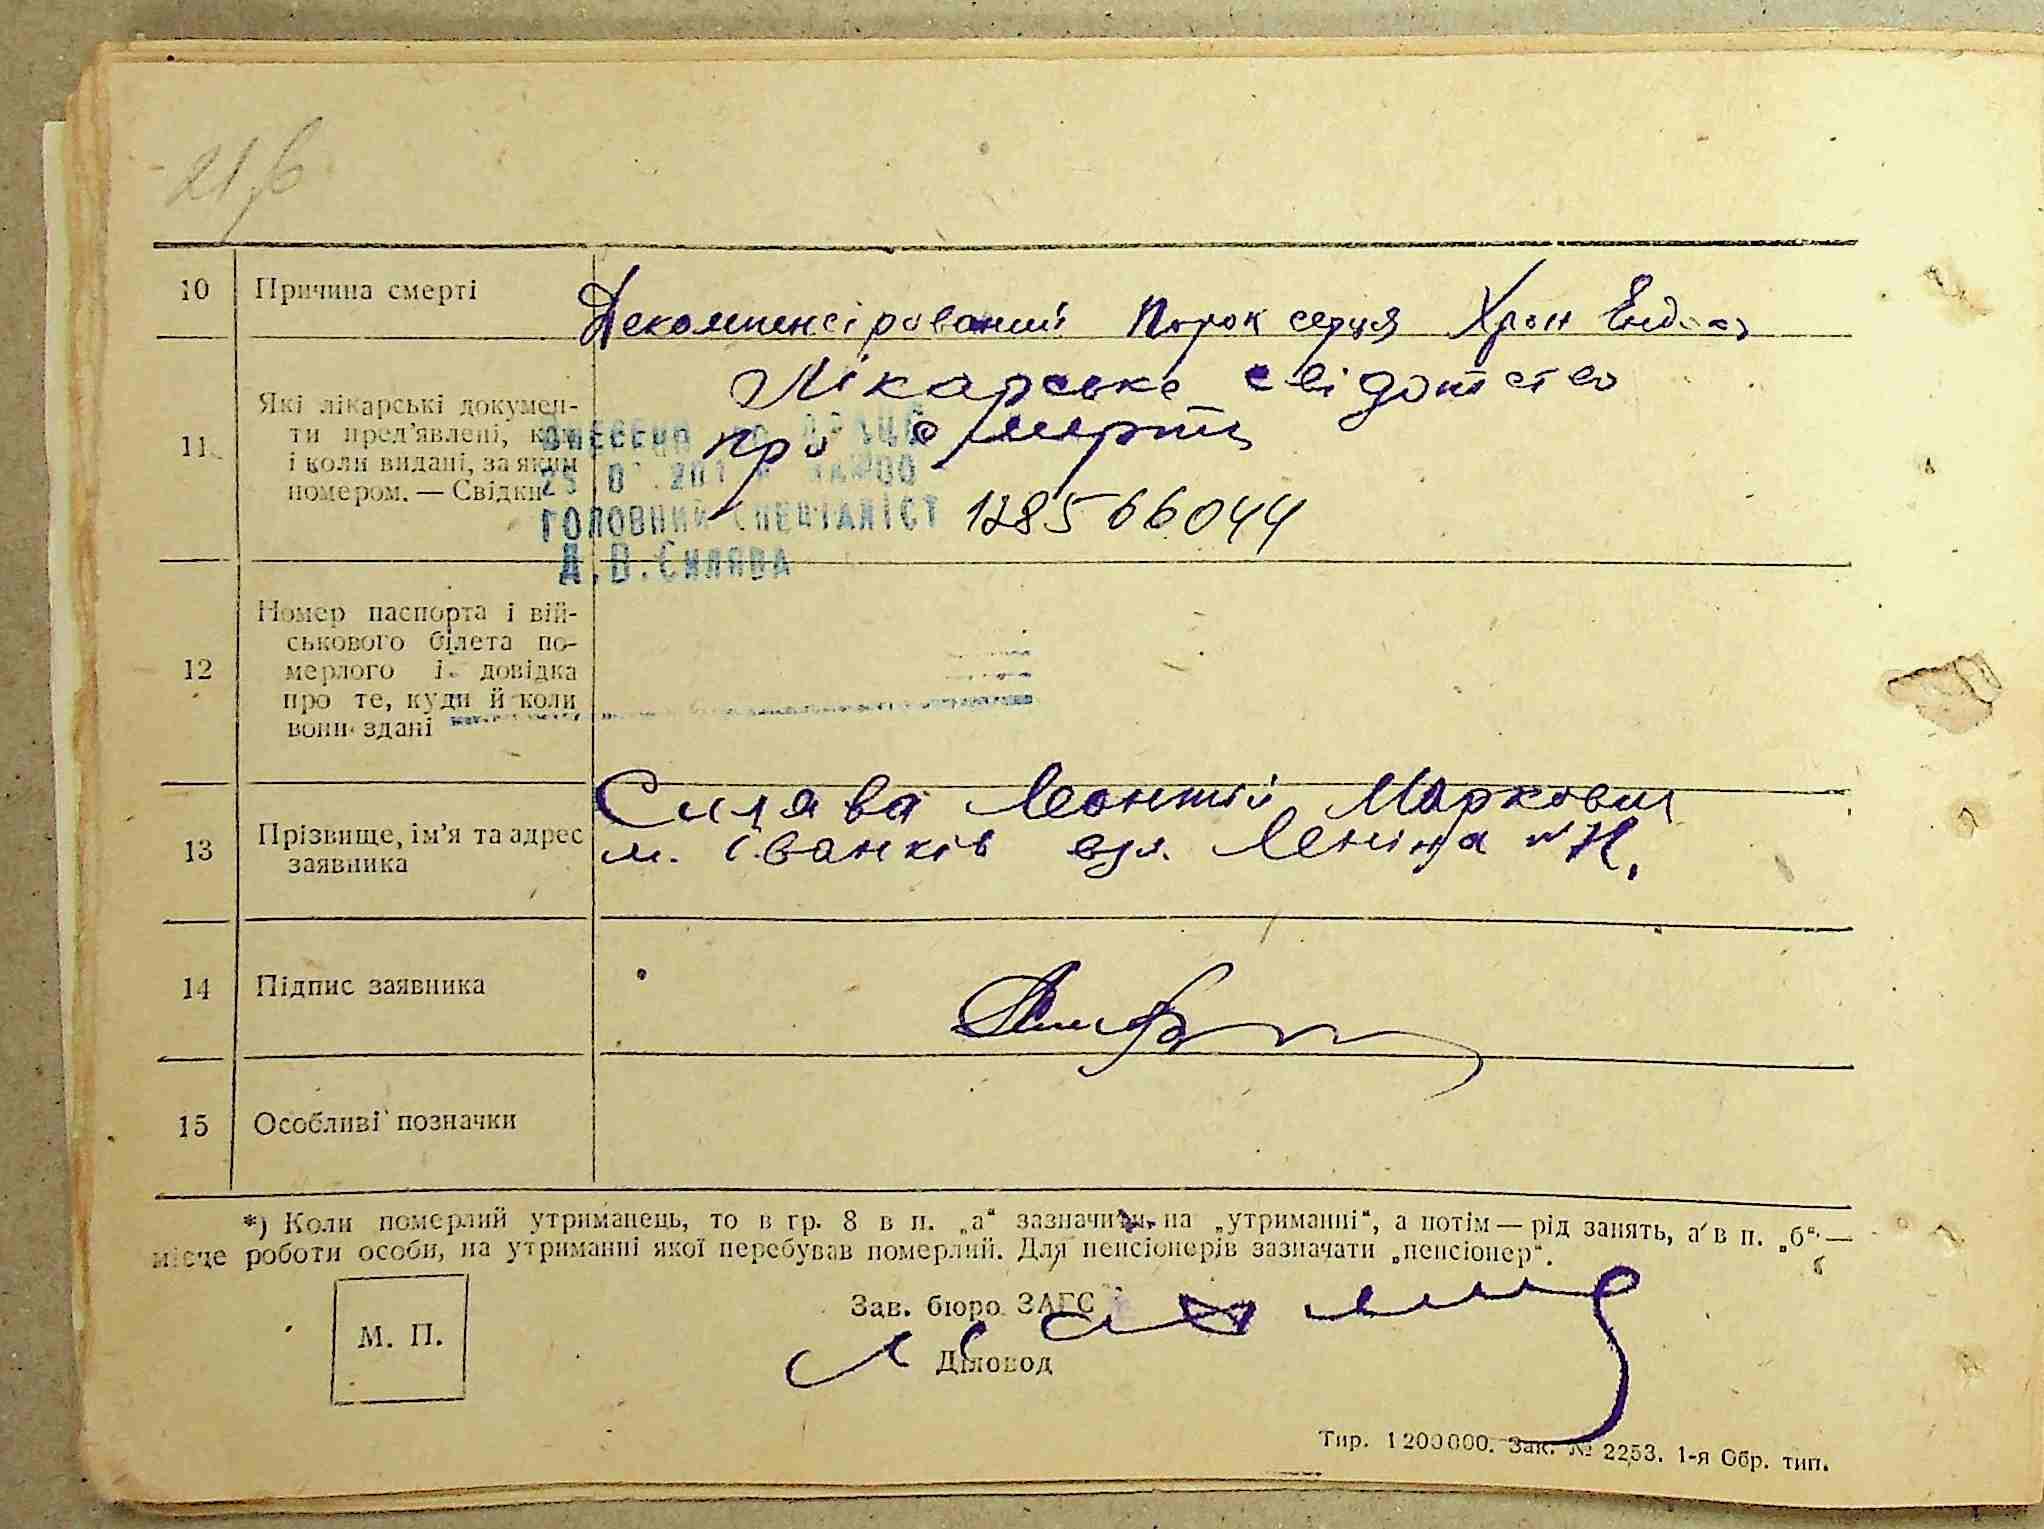 21б
10 Причина смерті Декомпенсірований порок серця Хрон Ендо
11 Які лікарські докумен-
ти пред'явлені, ким
і коли видані, за яким
номером. — Свідки
Лікарське свідотство
про смерть
128566044
ВНЕСЕНО ДО ДРАЦС
ГОЛОВНИЙ СПЕЦІАЛІСТ
А.В.Силява
12 Номер паспорта і вій-
ськового білета по-
мерлого і довідка
про те, куди й коли
вони здані
13 Прізвище, ім'я та адрес
заявника
Силява Леонтій Маркович
м. Іванків вул. Леніна
14 Підпис заявника
15 Особливі позначки
*) Коли померлий утриманець, то в гр. 8 в п. „а“ зазначити на „утриманні“, а потім — рід занять, а в п. „б“ —
місце роботи особи, на утриманні якої перебував померлий. Для пенсіонерів зазначати „пенсіонер“.
М. П.
Зав. бюро ЗАГС
Діловод
Тир. 1200000. Зак. № 2253. 1-я Обр. тип.